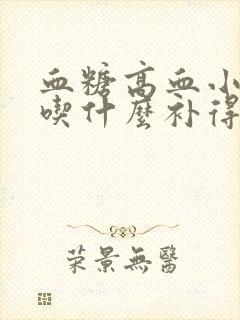 血糖高血小
喫什麼补得
荣景無醫